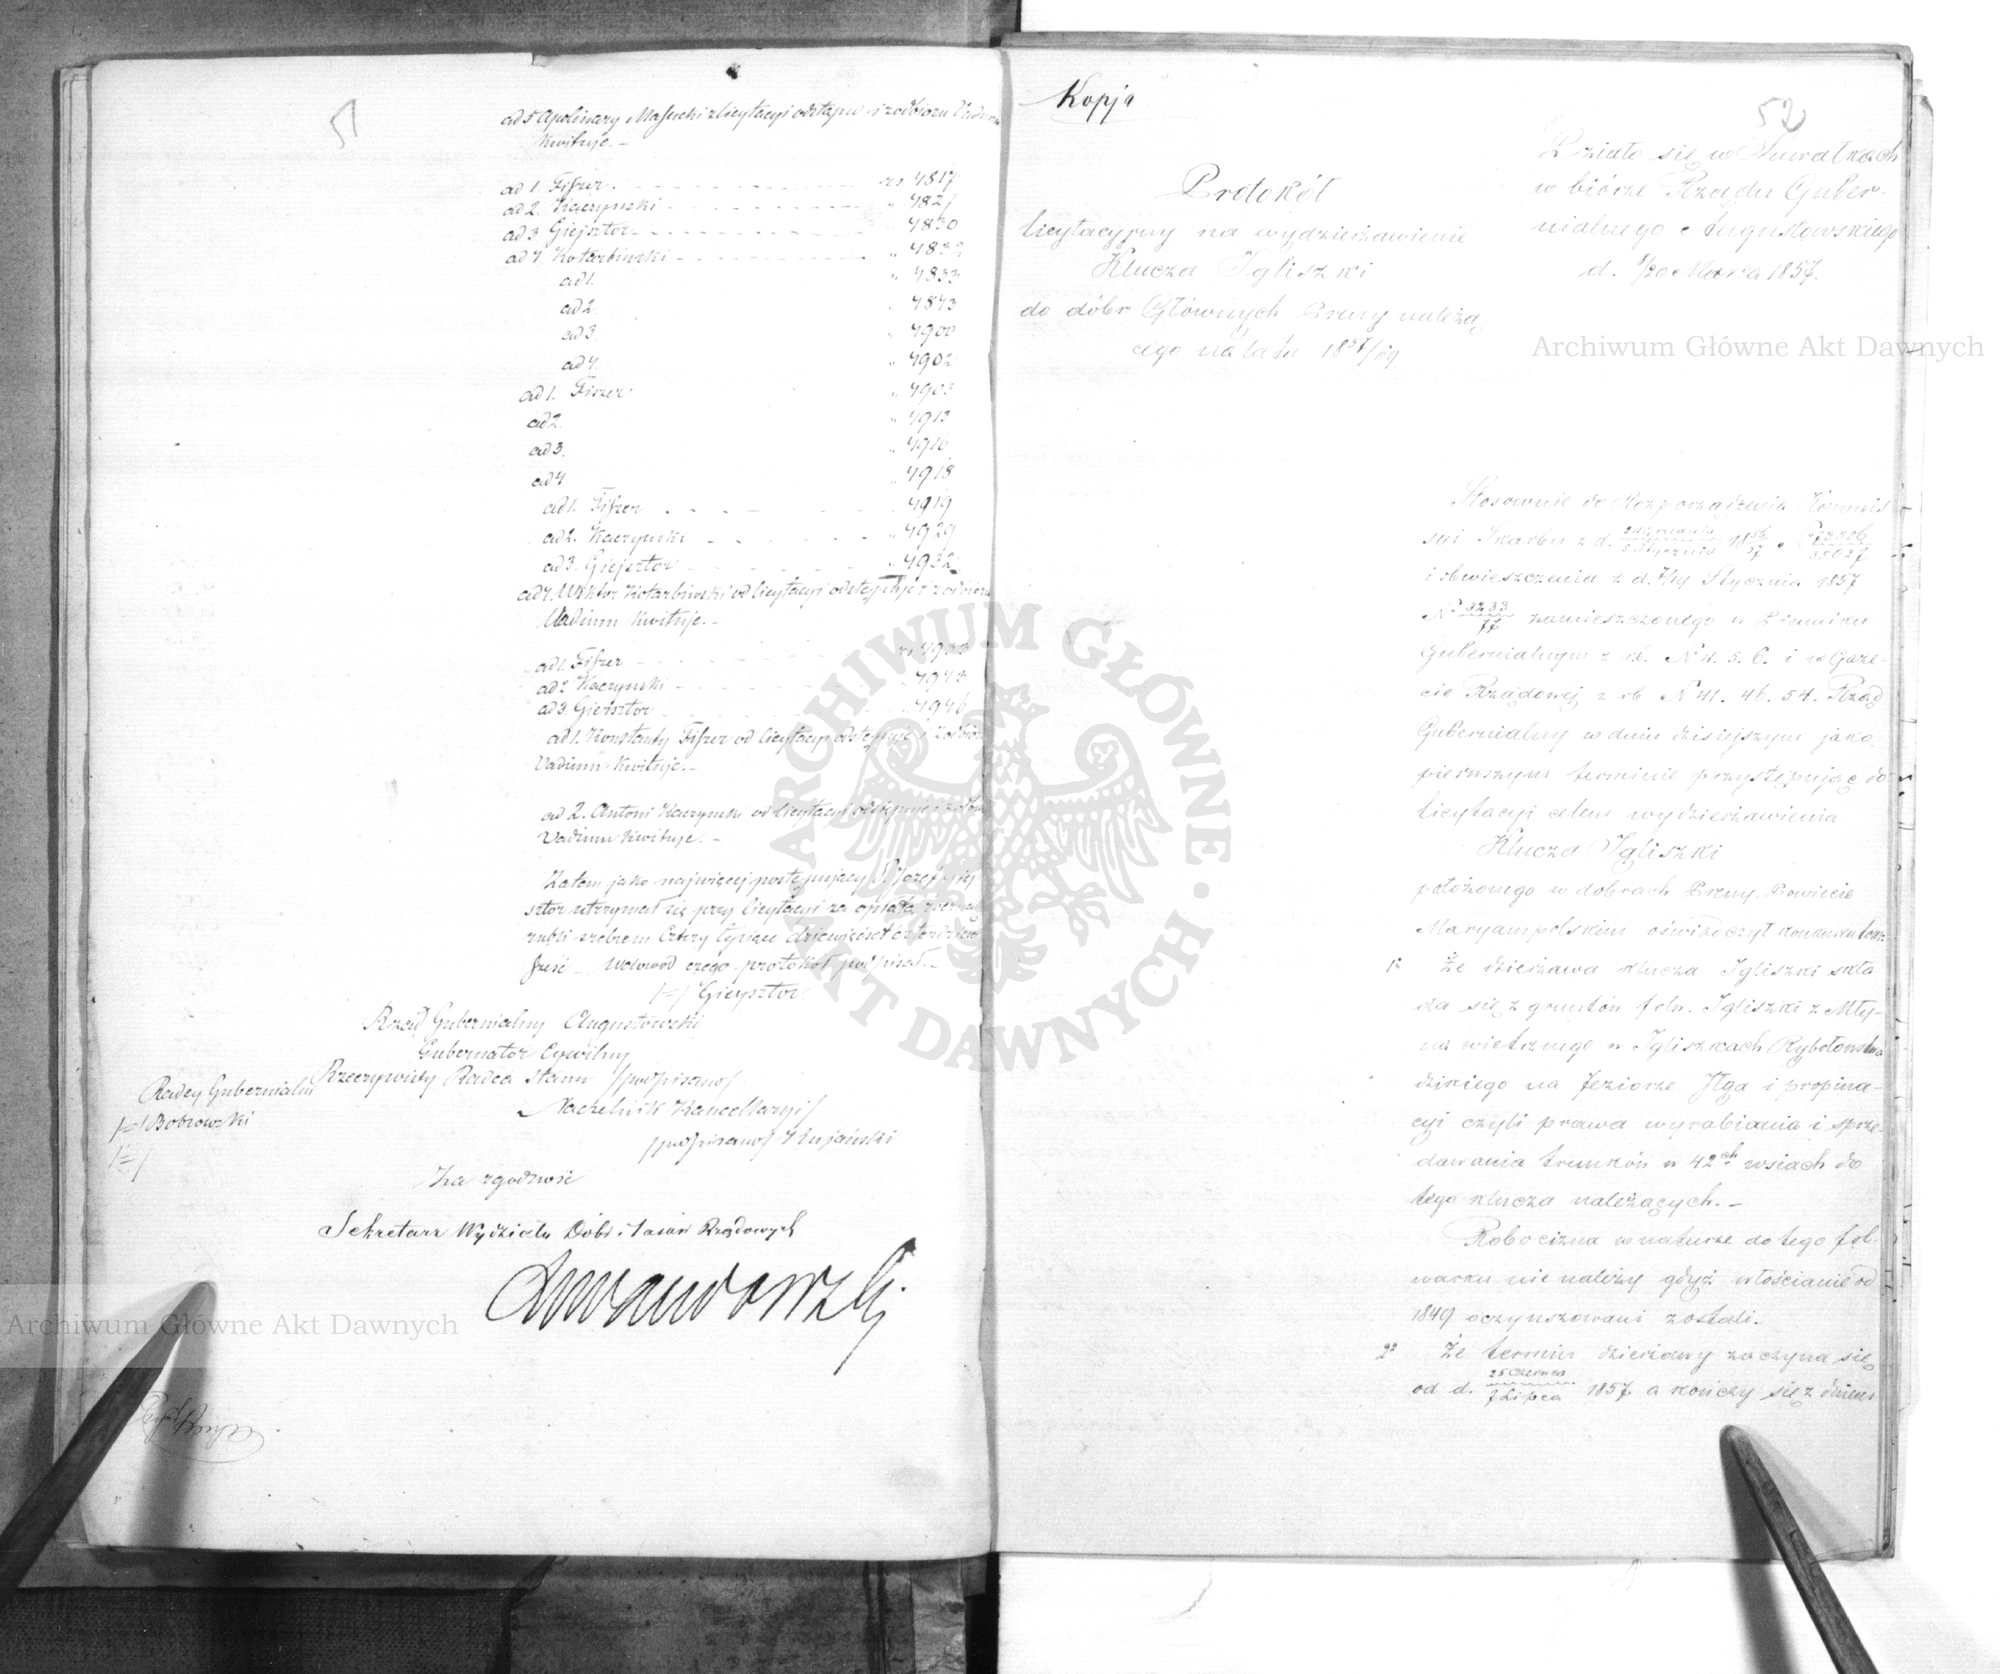 51
ad 5 Apolinary Masucki z licytacyi odstąpił i z odbioru Vadium
kwituje. –
ad 1. Fiszer . rs 4817
ad 2. Kaczyński . " 4827
ad 3 Giejsztor " 4830
ad 4 Kotarbiński " 4832
ad 1. " 4833
ad 2. " 4843
ad 3. " 4900
ad 4. " 4902
ad 1. Fiszer " 4903
ad 2. " 4913
ad 3. " 4916
ad 4 " 4918
ad 1. Fiszer . " 4919
ad 2. Kaczyński " 4929
ad 3. Giejsztor " 4932
ad 4. Wiktor Kotarbiński od licytacyi odstępuje i z odbioru
Vadium kwituje. –
ad 1. Fiszer rs 4933
ad 2 Kaczyński " 4943
ad 3. Giejsztor " 4946
ad 1. Konstanty Fiszer od licytacyi odstępuje i z odbioru
Vadium kwituje. –
ad 2. Antoni Kaczyński od licytacyi odstępuje i z odbioru
Vadium kwituje. –
Zatem jako najwięcej postępujący P. Józef Giej
sztor utrzymał się przy licytacyi za opłatą roczną
rubli srebrem cztery tysiące dziewięćset czterdzieści
sześć – w dowód czego protokół podpisał. –
/–/ Giejsztor
Rząd Gubernialny Augustowski
Gubernator Cywilny
Rzeczywisty Radca Stanu /podpisano/
Radcy Gubernialni
Naczelnik Kancellaryi
/–/ Bobrowski
/podpisano/ Kujański
/–/
Za zgodność
Sekretarz Wydziału Dóbr i Lasów Rządowych
Kopja
52
Działo się w Suwałkach
w biórze Rządu Guber-
nialnego Augustowskiego
d. 8/20 Marca 1857.
Protokół
licytacyjny na wydzierżawienie
Klucza Igliszki
do dóbr Głównych Preny należą
cego na lata 1857/69
Stosownie do Rozporządzenia Kommis
syi Skarbu z d. 24 Grudnia / 5 Stycznia 1856/57 N
i obwieszczenia z d. 7/19 Stycznia 1857
N 3233/77 zamieszczonego w Dzienniku
Gubernialnym z rb. N 4. 5. 6. i w Gaze-
cie Rządowej z rb N 41. 46. 54. Rząd
Gubernialny w dniu dzisiejszym jako
pierwszym terminie przystępując do
licytacyi celem wydzierżawienia
Klucza Igliszki
położonego w dobrach Preny Powiecie
Maryampolskim oświadczył konkurentom
1° Że dzierżawa klucza Igliszki skła
da się z gruntów folw. Igliszki z Mły-
na wietrznego w Igliszkach Rybołowstwa
dzikiego na Jeziorze Ilga i propina-
cyi czyli prawa wyrabiania i sprze-
dawania trunków w 42ch wsiach do
tego klucza należących. –
Robocizna w naturze do tego fol-
warku nie należy gdyż włościanie od
1849 oczynszowani zostali. –
2° Że termin dzierżawy zaczyna się
od d. 25 Czerwca / 7 Lipca 1857 a kończy się z dniem
Archiwum Główne Akt Dawnych
Archiwum Główne Akt Dawnych
ARCHIWUM GŁÓWNE · AKT DAWNYCH ·